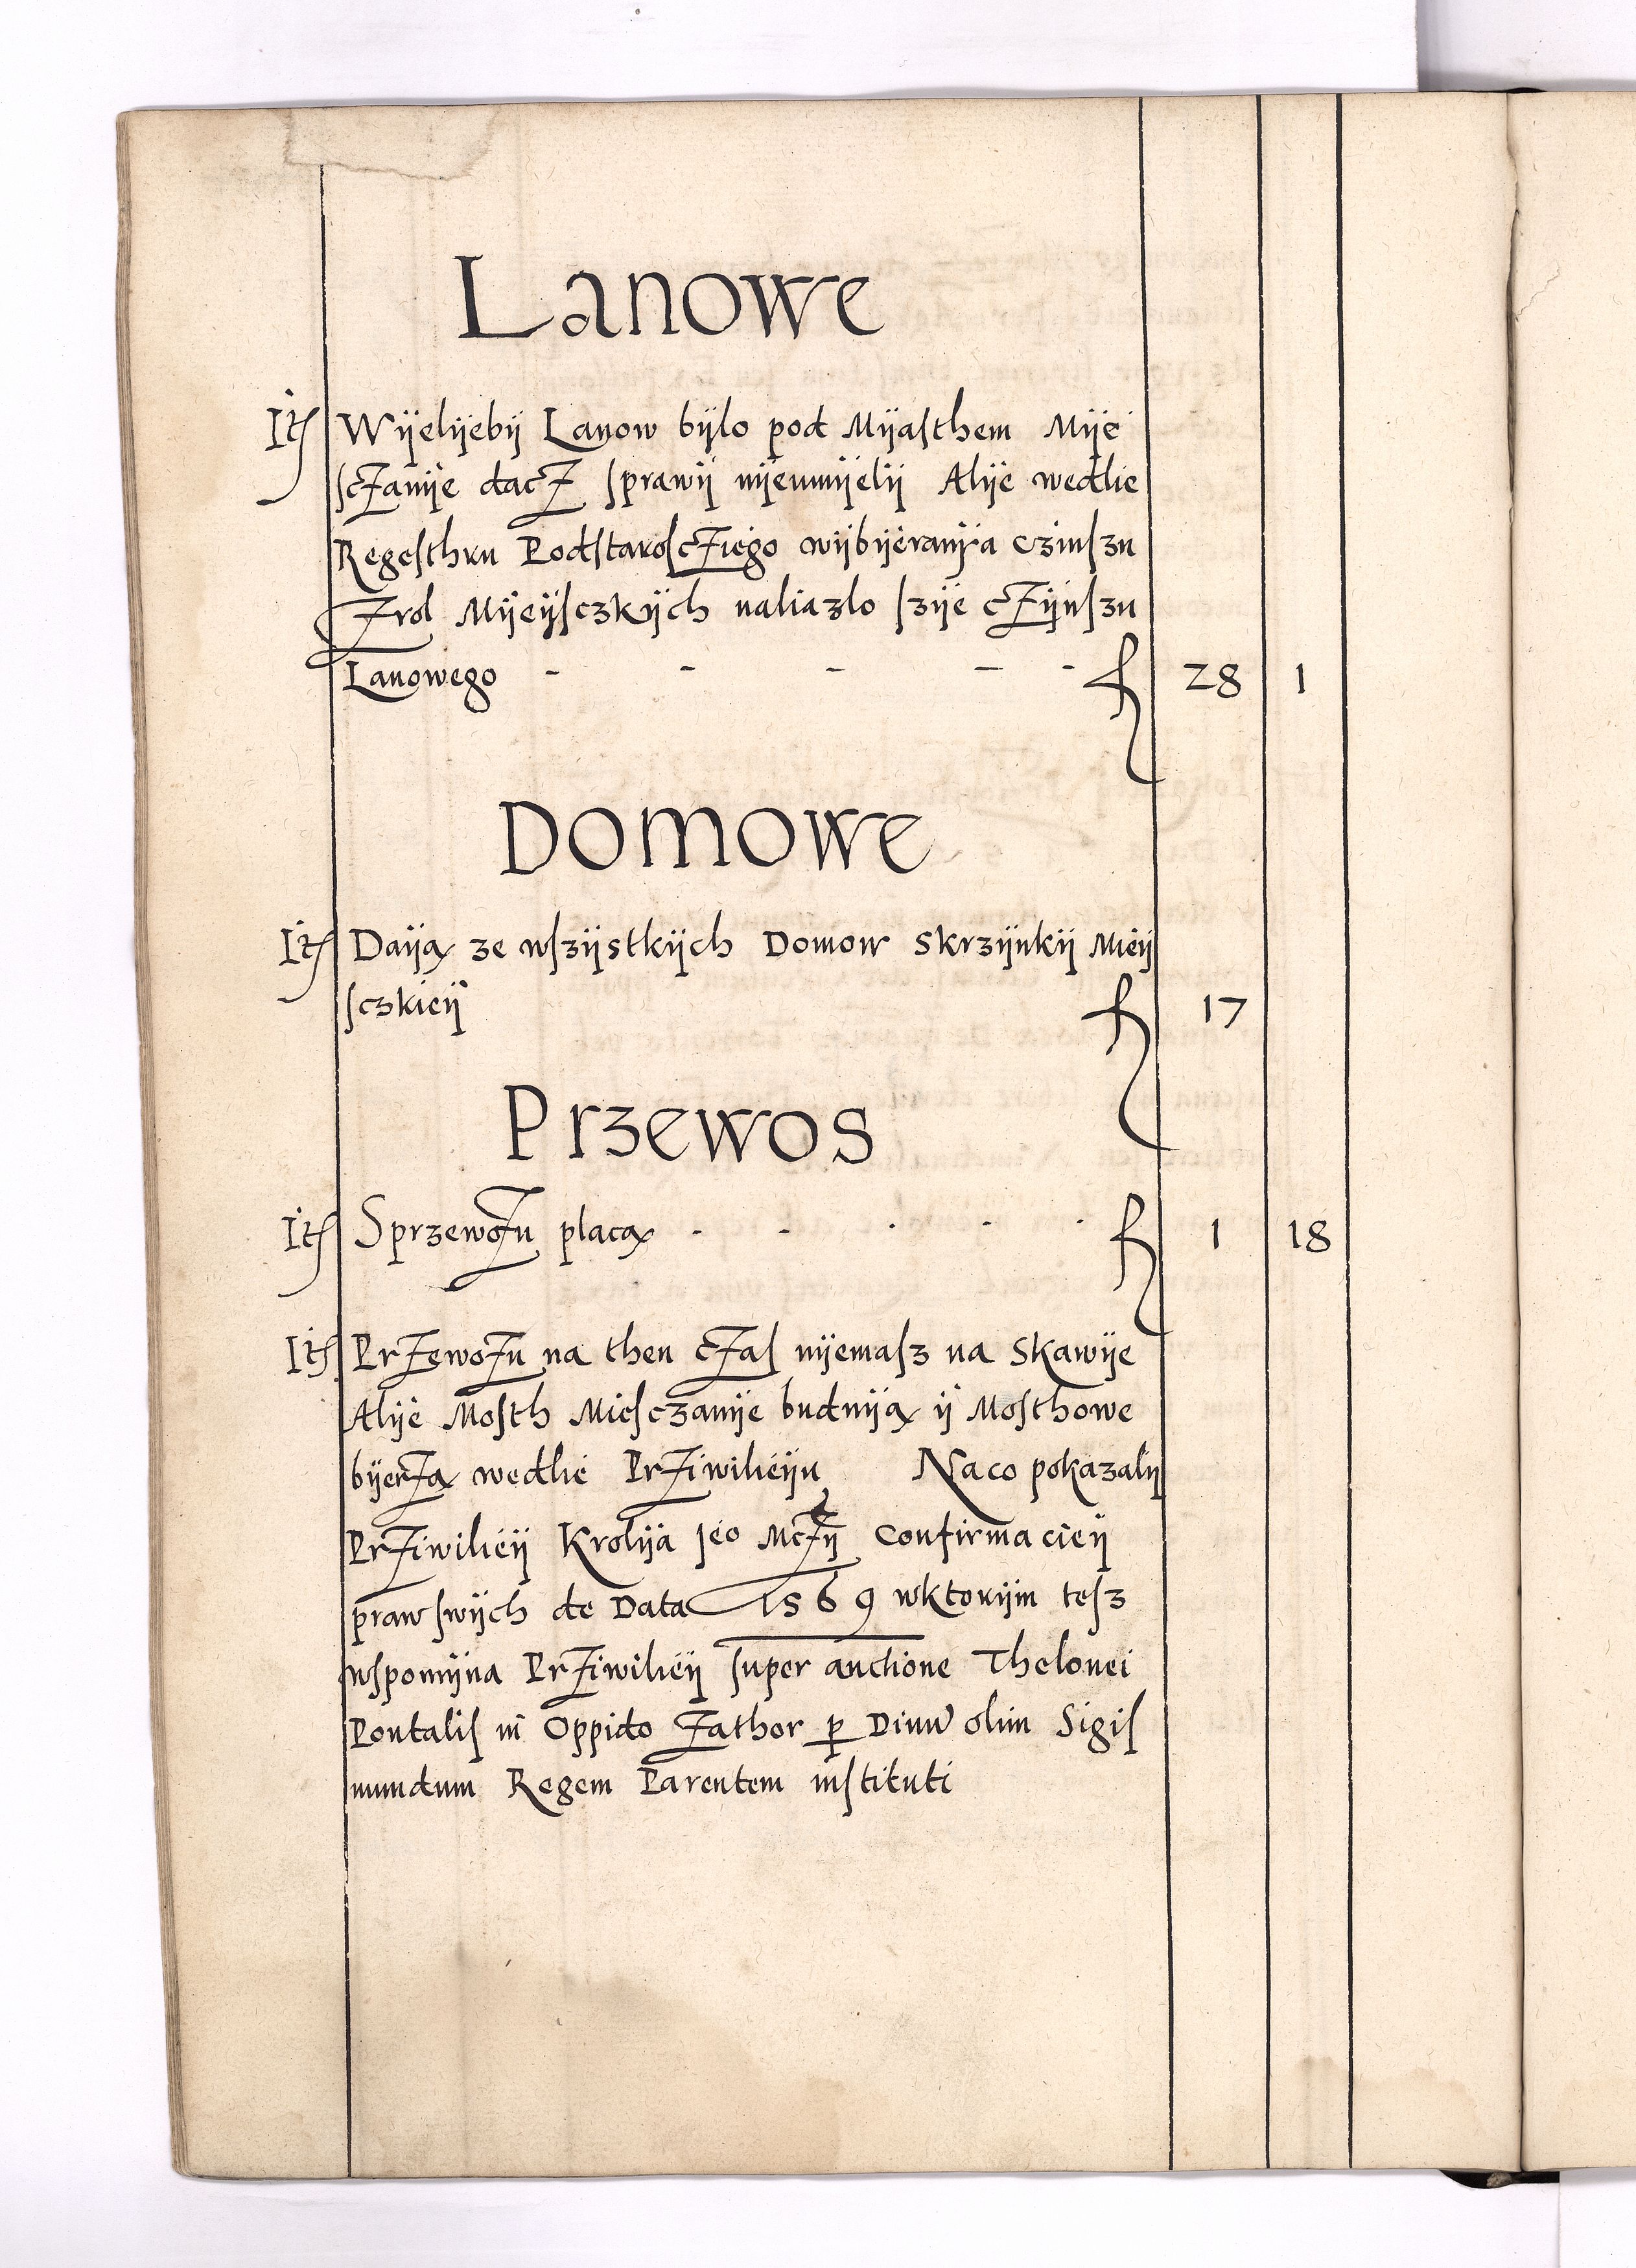 Lanowe
Itʃ Wÿelÿebÿ Lanow bÿlo pod Mÿaſthem Mÿe
ſcʒanÿe dacʒ ſprawÿ nÿeumÿelÿ Alÿe wedlie
Regeſthru Podſtaroſcʒiego wÿbÿeranÿa czinſzu
Zrol Mÿeÿſczkÿch naliazlo ſzÿe cʒÿnſzu
Lanowego - - - - - f 28 1
Domowe
Itʃ Daÿą ze wſzÿstkÿch Domow Skrzÿnkÿ Mieÿ
ſczkieÿ f 17
Przewos
Itʃ Sprzewoʒu placą - - - - - f 1 18
Itʃ Prʒewoʒu na then cʒaſ nÿemaſz na Skawÿe
Alÿe Moſth Mieſczanÿe budnÿą ÿ Moſthowe
bÿerʒą wedlie Prʒiwilieÿu Naco pokazalÿ
Prʒiwilieÿ Krolÿa Jeo Mcʒÿ Confirmacieÿ
praw ſwÿch de Data 1569 wktorÿm teſz
wſpomÿna Prʒiwilieÿ ſuper auctione Thelonei
Pontaliſ in Oppido Zathor ꝑ Diuu̅ olim Sigiſ
mundum Regem Parentem inſtituti